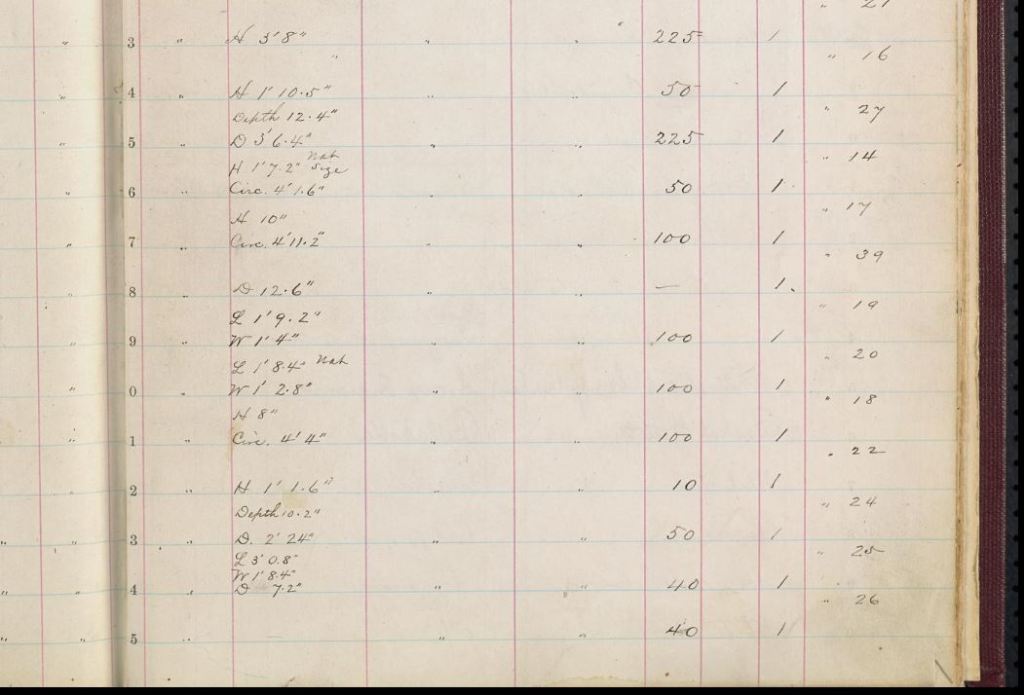 " 21
" 3 " H 3' 8" " " 225 1
" " 16
" 4 " H 1' 10.5" " " 50 1
Depth 12.4" " 27
" 5 " D 3' 6.4" " " 225 1
Nat " 14
H 1' 7.2" Size
" 6 " Circ. 4' 1.6" " " 50 1
H 10" " 17
" 7 " Circ. 4' 11.2" " " 100 1
" 39
" 8 " D 12.6" " " — 1
L 1' 9.2" " 19
" 9 " W 1' 4" " " 100 1
L 1' 8.4" Nat " 20
" 0 " W 1' 2.8" " " 100 1
H 8" " 18
" 1 " Circ. 4' 4" " " 100 1
" 22
" 2 " H 1' 1.6" " " 10 1
Depth 10.2" " 24
" " 3 " D. 2' 24" " " 50 1
L 3' 0.8" " 25
W 1' 8.4"
" " 4 " D 7.2" " " 40 1
" 26
" " 5 " " " 40 1